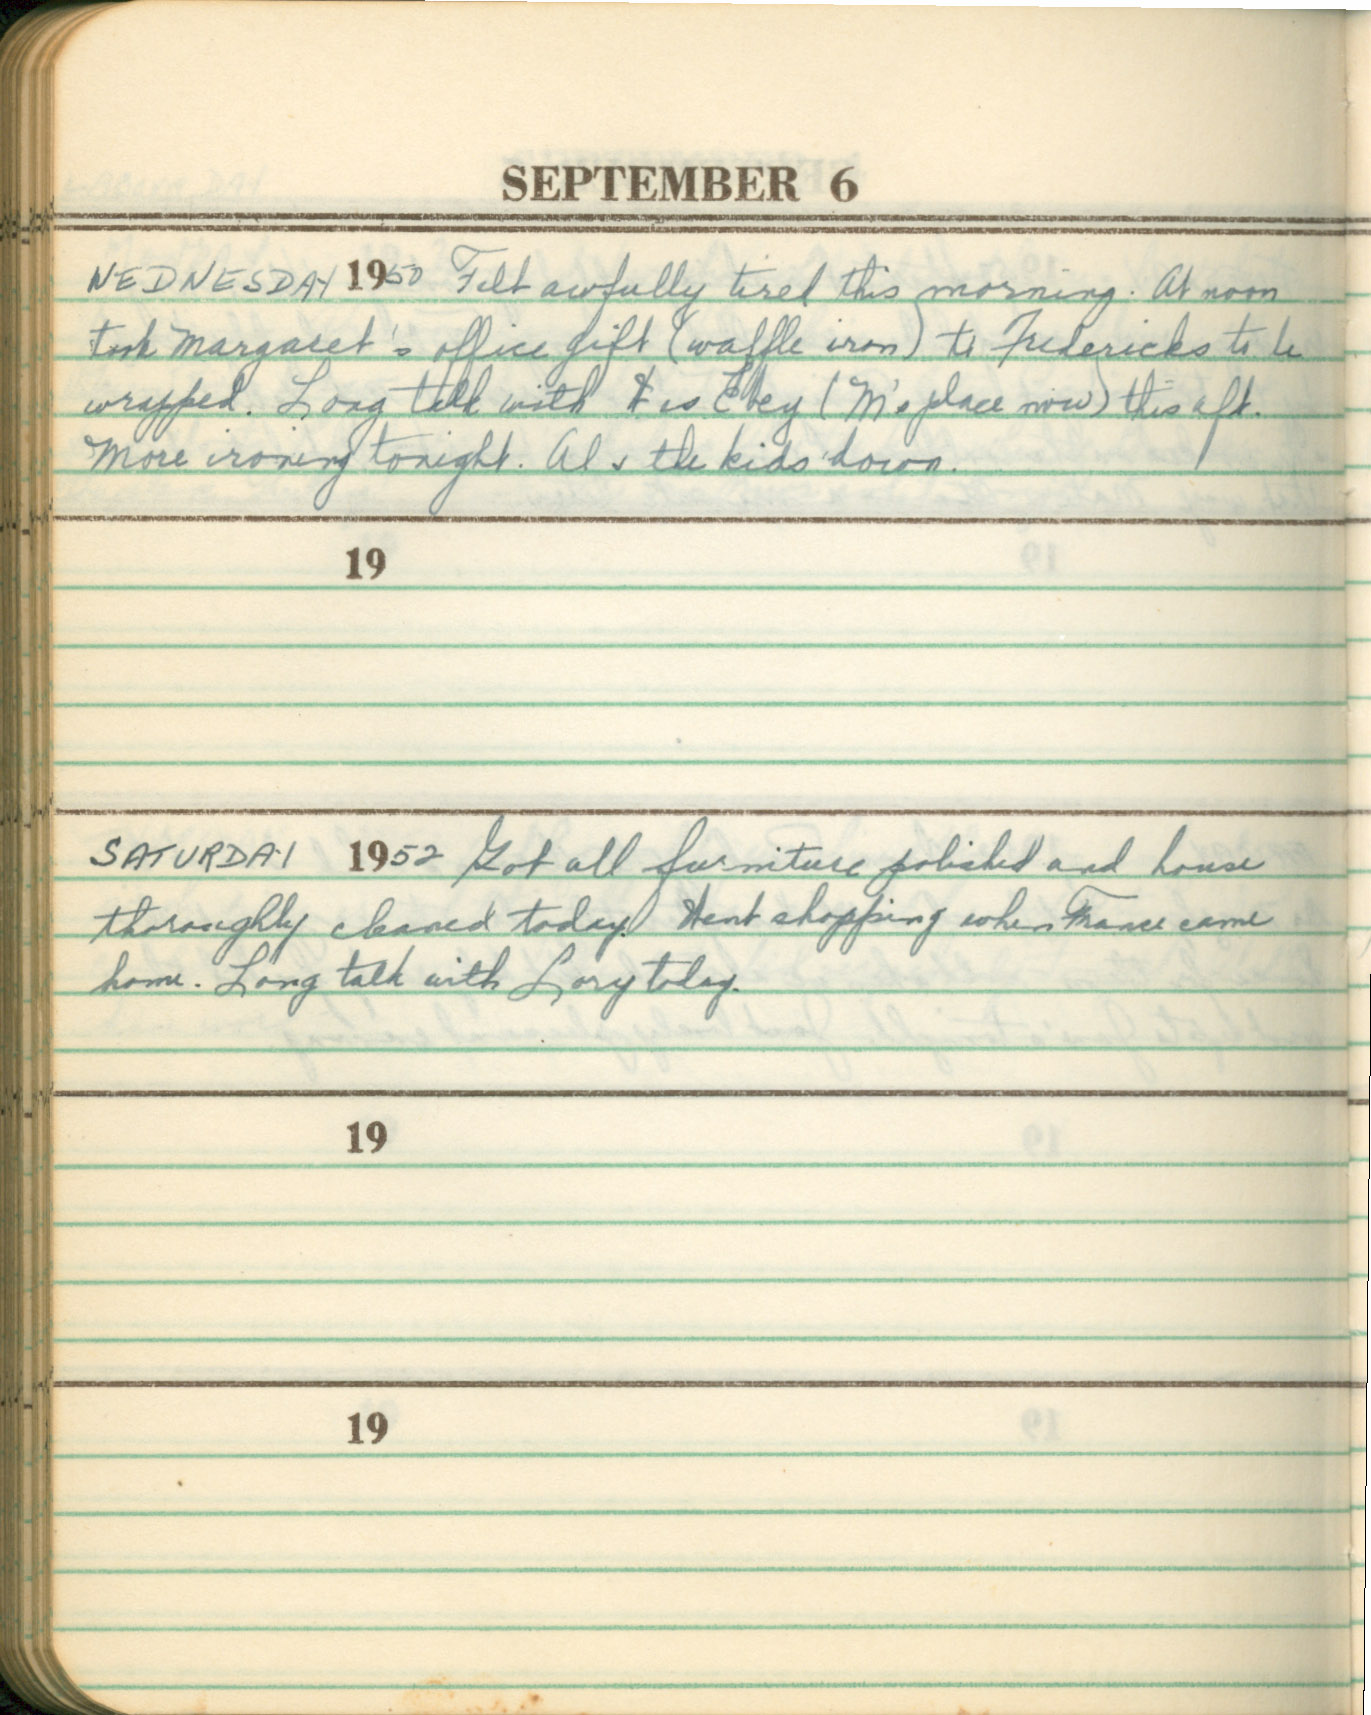 SEPTEMBER 6
WEDNESDAY 1950 Felt awfully tired this morning. At noon
took Margaret's office gift (waffle iron) to Fredericks to be
wrapped. Long talk with Ebey (M's place now) this aft.
More ironing tonight. Al & the kids down.
19
SATURDAY 1952 Got all furniture polished and house
thoroughly cleaned today. Went shopping when France came
home. Long talk with Lory today.
19
19